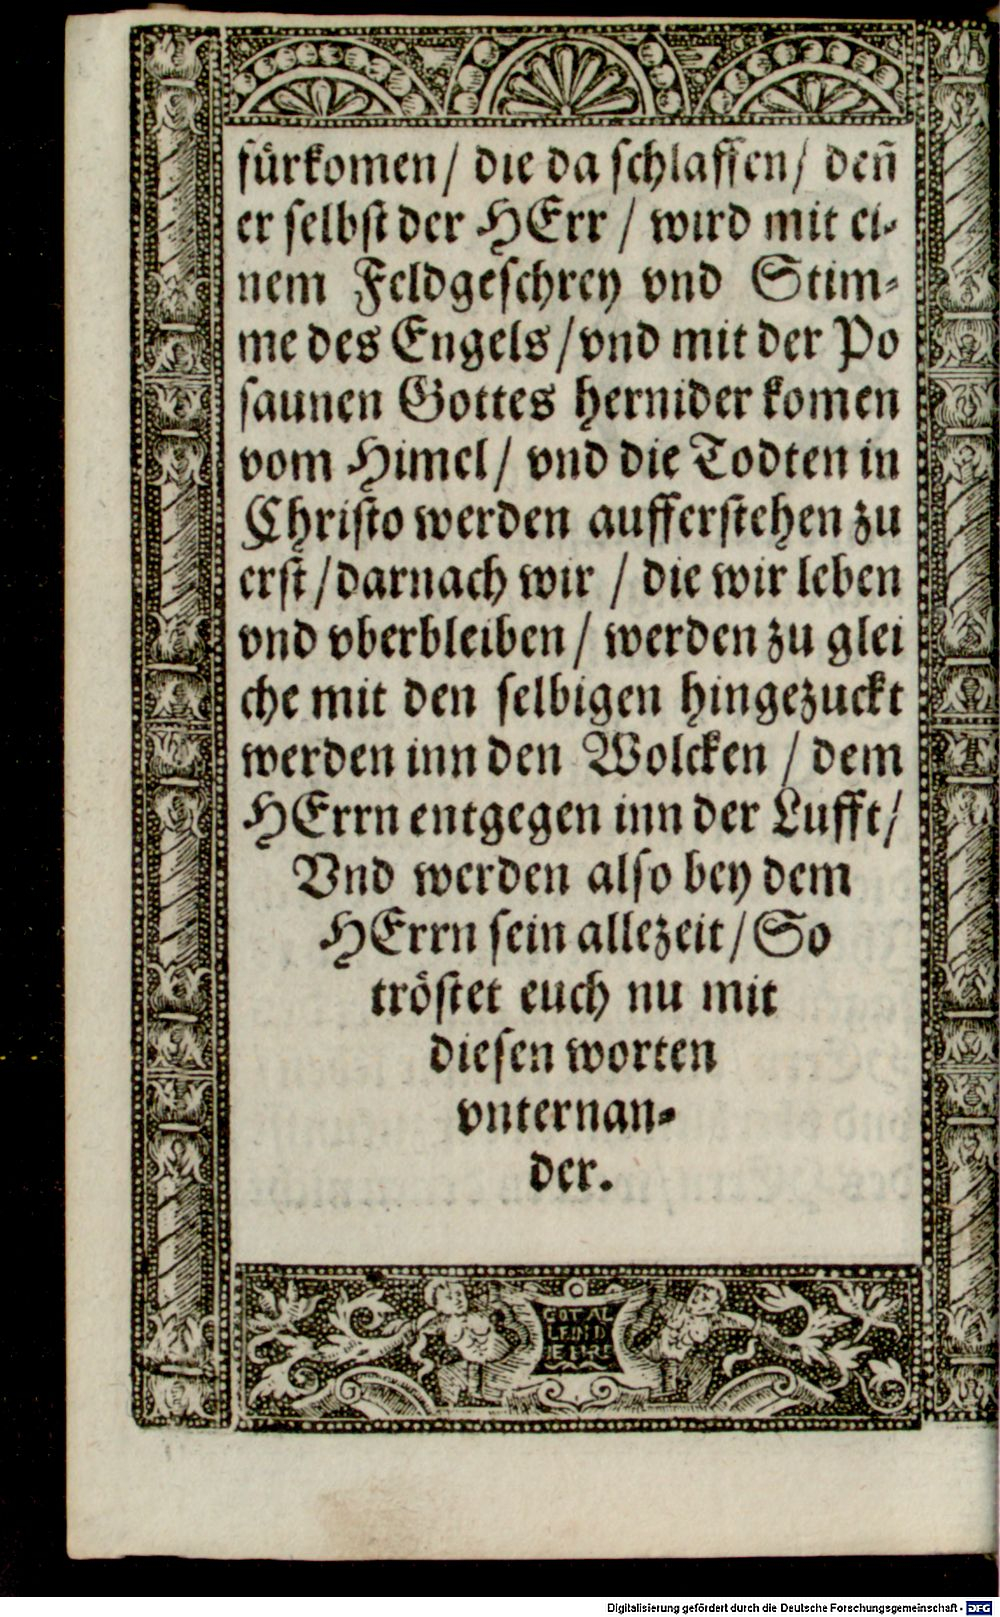 fürkomen/ die da schlaffen/ deñ
er selbst der HErr / wird mit ei-
nem Feldgeschrey vnd Stim-
me des Engels/vnd mit der Po
saunen Gottes hernider komen
vom Himel/ vnd die Todten in
Christo werden aufferstehen zu
erst/darnach wir / die wir leben
vnd vberbleiben/ werden zu glei
che mit den selbigen hingezuckt
werden inn den Wolcken / dem
HErrn entgegen inn der Lufft/
Vnd werden also bey dem
HErrn sein allezeit/ So
tröstet euch nu mit
diesen worten
vnternan-
der.
GOT AL
LEIN D
IE EHRE
Digitalisierung gefördert durch die Deutsche Forschungsgemeinschaft - DFG